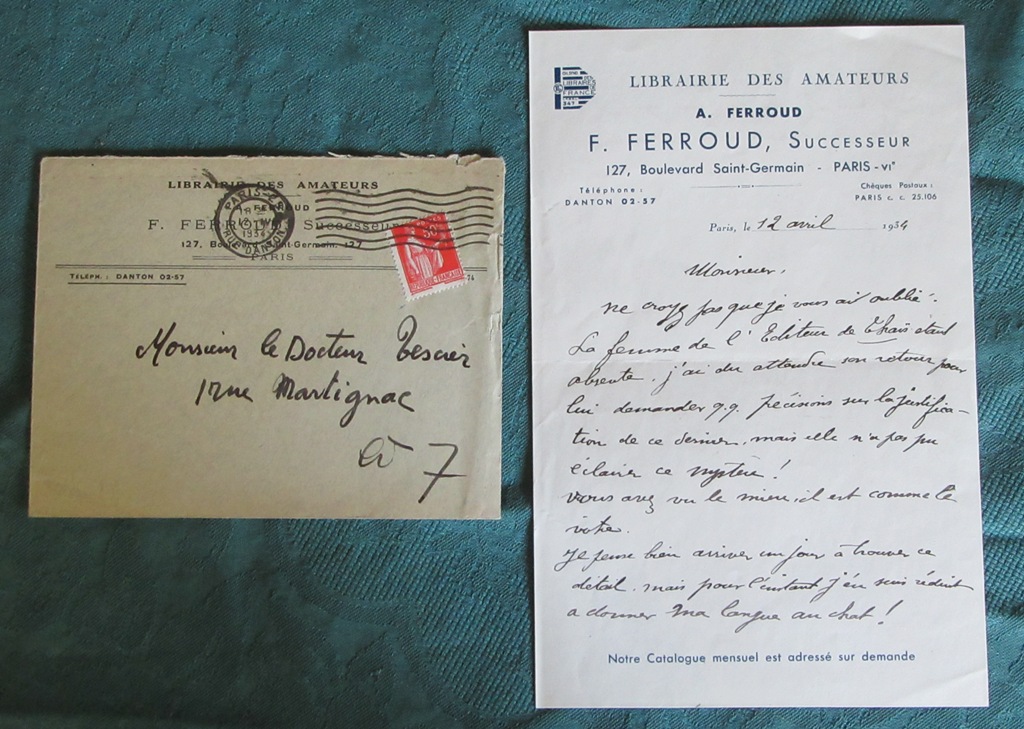 LIBRAIRIE DES AMATEURS
A. FERROUD
F. FERROUD, Successeur
127, Boulevard Saint-Germain, 127
PARIS
TÉLÉPH. : DANTON 02-57
PARIS
12
1934
RUE DANTON
50c
REPUBLIQUE FRANÇAISE
Monsieur le Docteur
1 rue Martignac
à 7
LIBRAIRES
FRANCE
347
LIBRAIRIE DES AMATEURS
A. FERROUD
F. FERROUD, Successeur
127, Boulevard Saint-Germain - PARIS-VIᵉ
Téléphone :
DANTON 02-57
Chèques Postaux :
PARIS c. c. 25.106
Paris, le 12 avril 1934
Monsieur,
ne croyez pas que je vous ait oublié.
La femme de l'Editeur de Thaïs étant
absente, j'ai du attendre son retour pour
lui demander q.q. précisions sur la justifica-
tion de ce dernier, mais elle n'a pas pu
éclairer ce mystère !
vous avez vu le mien, il est comme le
votre.
Je pense bien arriver un jour à trouver ce
détail, mais pour l'instant j'en suis réduit
a donner ma langue au chat !
Notre Catalogue mensuel est adressé sur demande